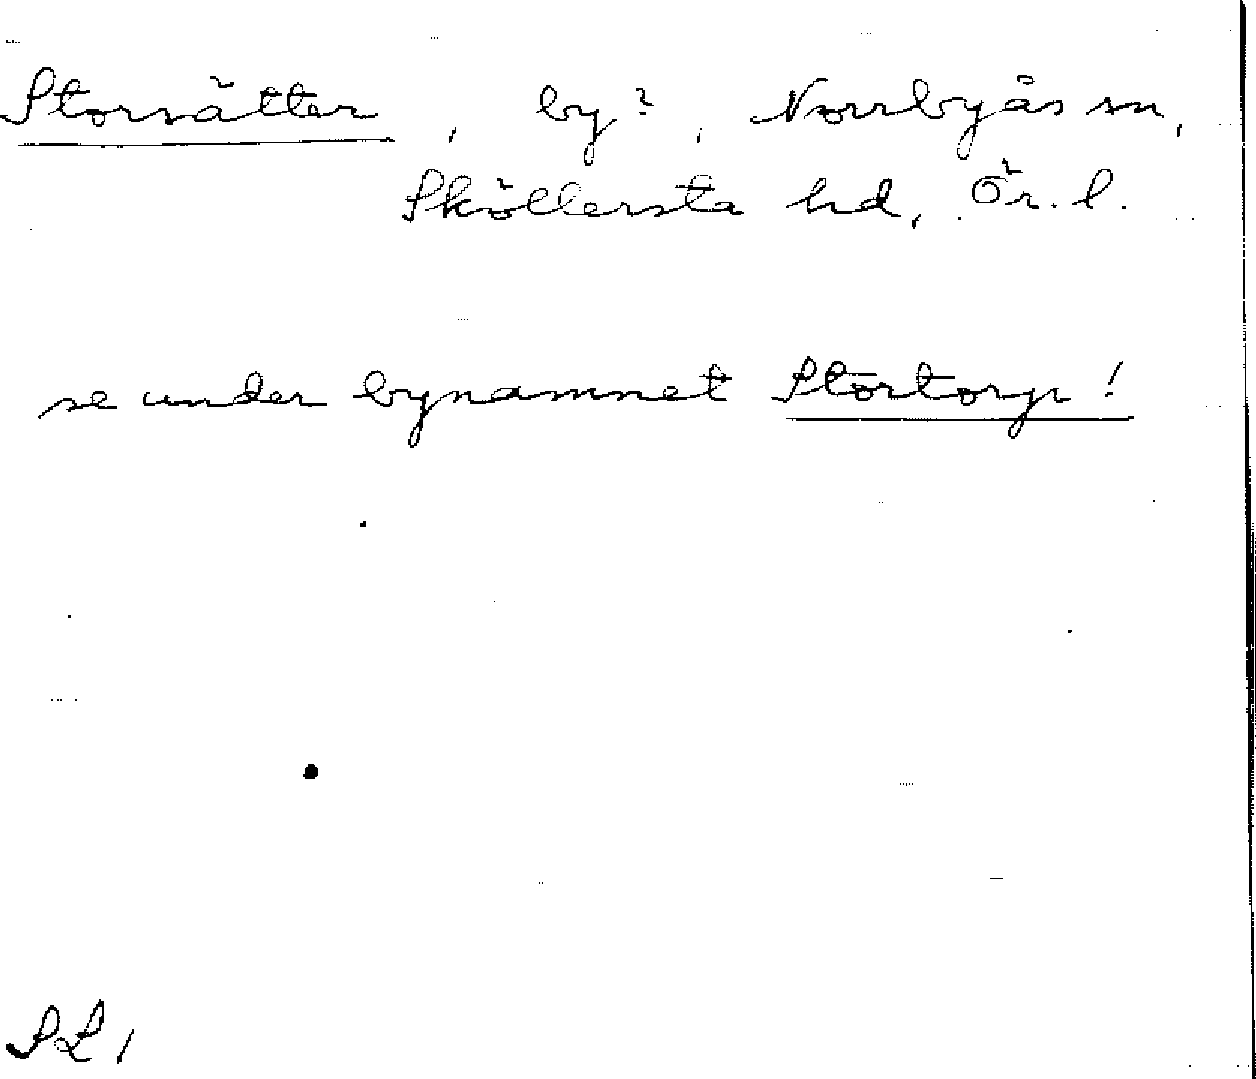 Storsätter, by?, Norrbyås sn,
Sköllersta hd, Ör. l.
se under bynamnet Stortorp!